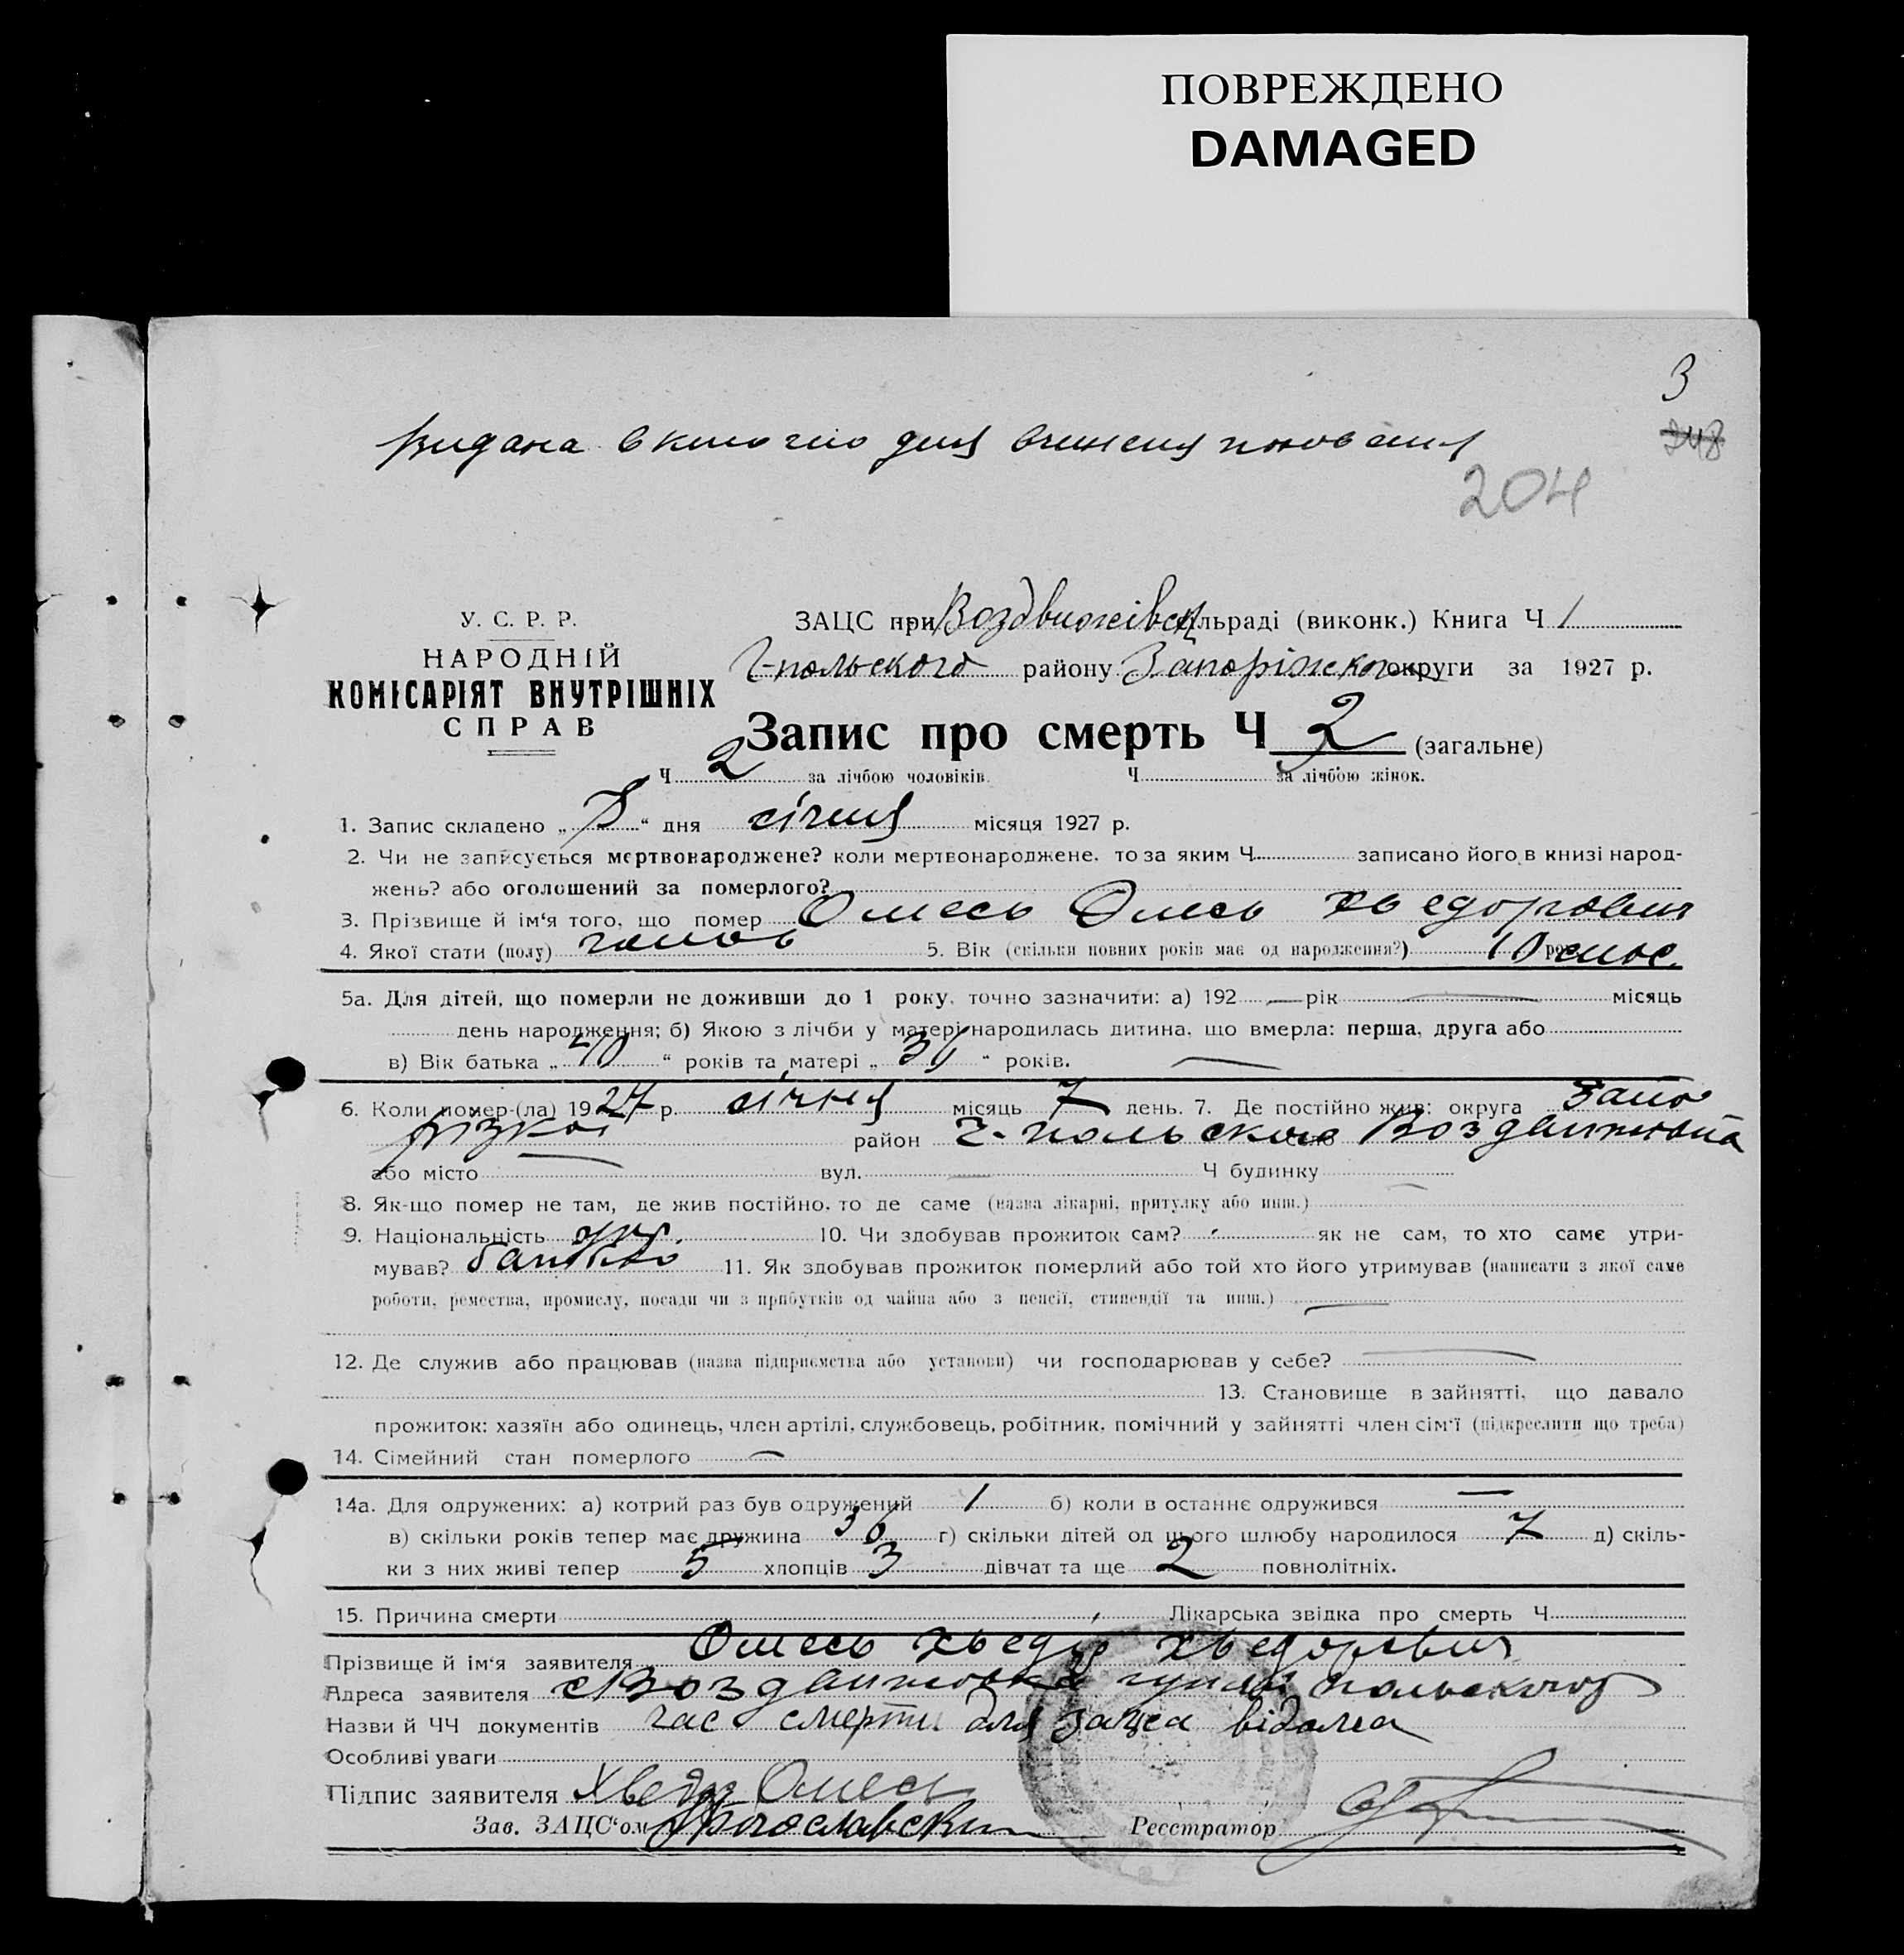 ПОВРЕЖДЕНО
DAMAGED
3
348
видана
204
У. С. Р. Р.
НАРОДНІЙ
КОМІСАРІЯТ ВНУТРІШНІХ
СПРАВ
ЗАЦС при Воздвижівск сільраді (виконк.) Книга Ч 1
Г-польского району Запоріжско округи за 1927 р.
Запис про смерть Ч 2 (загальне)
Ч 2 за лічбою чоловіків. Ч за лічбою жінок.
1. Запис складено „ “ дня січня місяця 1927 р.
2. Чи не записується мертвонароджене? коли мертвонароджене. то за яким Ч записано його в книзі народ-
жень? або оголошений за померлого?
3. Прізвище й ім‘я того, що помер Омесь Омесь Хведорович
4. Якої стати (полу) 5. Вік (скільки повних років має од народження?) 10
5а. Для дітей, що померли не доживши до 1 року, точно зазначити: а) 192 — рік — місяць
день народження; б) Якою з лічби у матері народилась дитина, що вмерла: перша, друга або
в) Вік батька „ 40 “ років та матері „ 36 “ років. —
6. Коли помер-(ла) 1927 р. січня місяць 7 день. 7. Де постійно жив: округа Запо
різкої район Г-польского село Воздвижовка
або місто — вул. — Ч будинку —
8. Як-що помер не там, де жив постійно, то де саме (назва лікарні, притулку або инш.)
9. Національність укр. 10. Чи здобував прожиток сам? як не сам, то хто саме утри-
мував? батько 11. Як здобував прожиток померлий або той хто його утримував (написати з якої саме
роботи, ремества, промислу, посади чи з прибутків од майна або з пенсії, стипендії та инш.) —
12. Де служив або працював (назва підприємства або установи) чи господарював у себе? —
13. Становище в зайнятті, що давало
прожиток: хазяїн або одинець, член артілі, службовець, робітник, помічний у зайнятті член сім‘ї (підкреслити що треба)
14. Сімейний стан померлого —
14а. Для одружених: а) котрий раз був одружений 1 б) коли в останнє одружився —
в) скільки років тепер має дружина 36 г) скільки дітей од цього шлюбу народилося 7 д) скіль-
ки з них живі тепер 5 хлопців 3 дівчат та ще 2 повнолітніх.
15. Причина смерти Лікарська звідка про смерть Ч
Прізвище й ім‘я заявителя Омесь Хведір Хведорович
Адреса заявителя с Воздвижовка гуляй польского
Назви й ЧЧ документів час смерти для зацса
Особливі уваги
Підпис заявителя Хведір Омесь
Зав. ЗАЦС‘ом Реєстратор